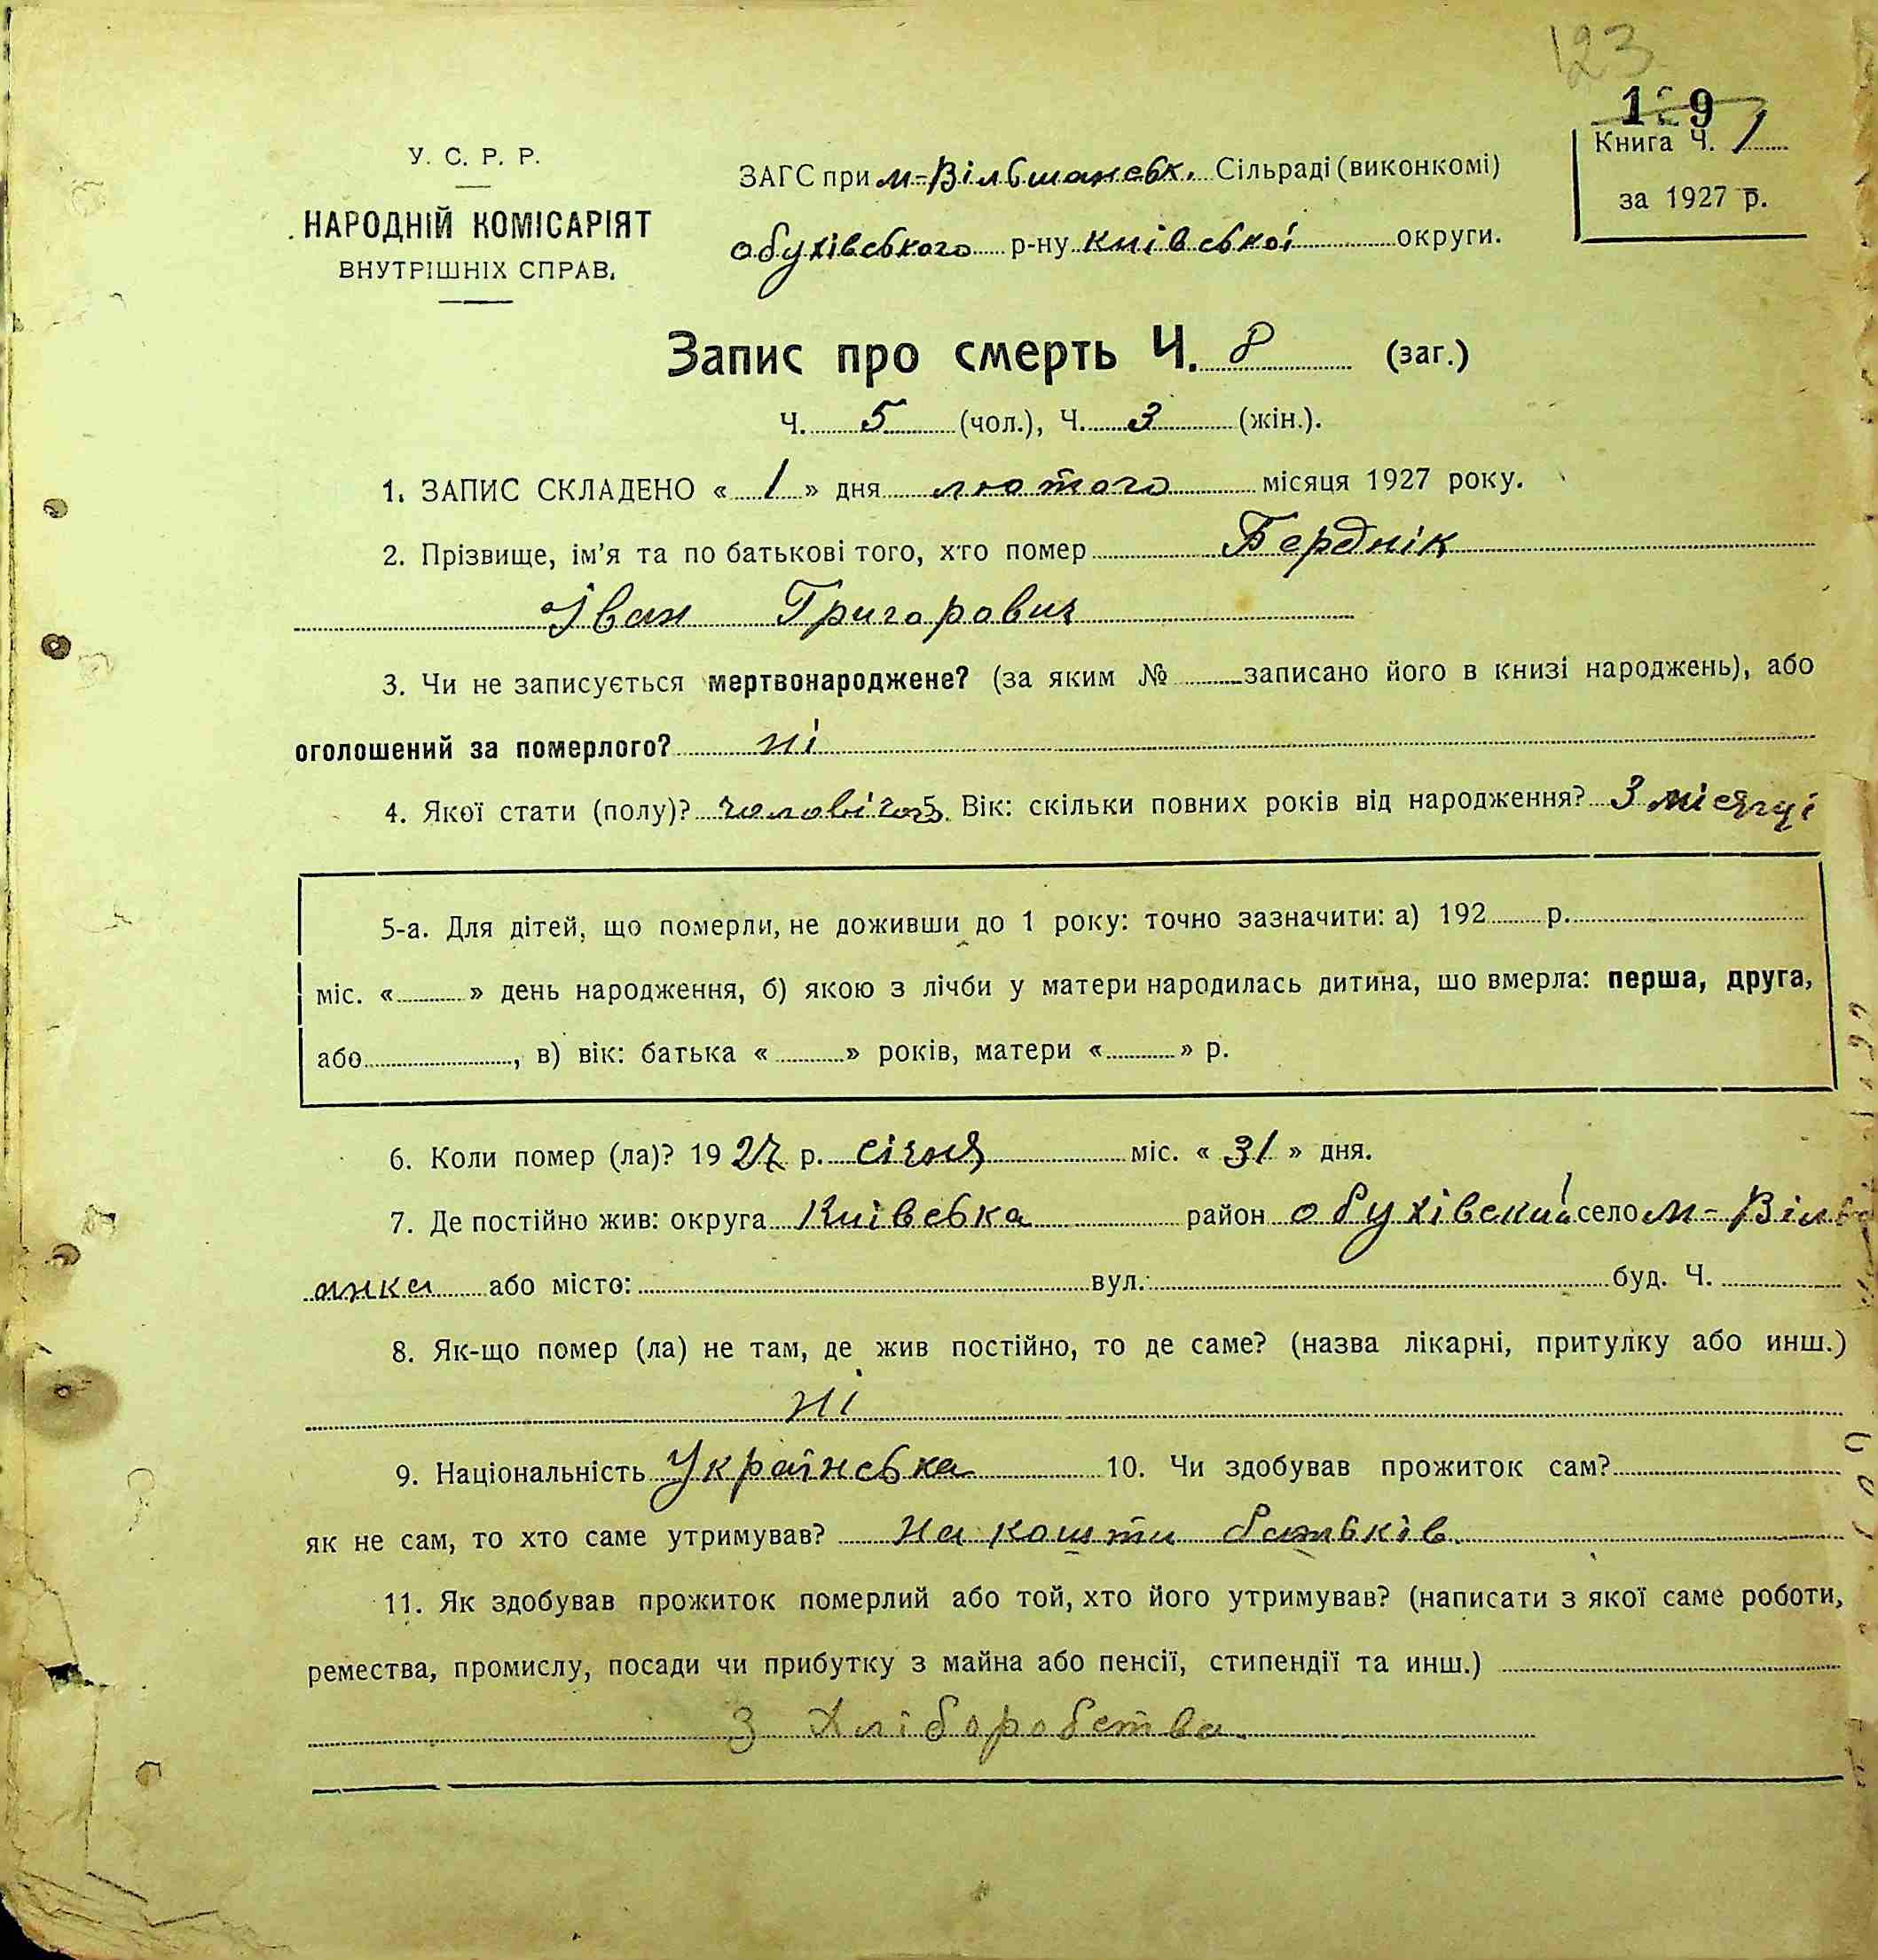 123
129
Книга Ч. 1
за 1927 р.
У. С. Р. Р.
НАРОДНІЙ КОМІСАРІЯТ
ВНУТРІШНІХ СПРАВ.
ЗАГС при м-Вільшанськ. Сільраді (виконкомі)
обухівського р-ну київської округи.
Запис про смерть Ч. 8 (заг.)
Ч. 5 (чол.), Ч. 3 (жін.).
1. ЗАПИС СКЛАДЕНО « 1 » дня лютого місяця 1927 року.
2. Прізвище, ім'я та по батькові того, хто помер Берднік
Іван Григорович
3. Чи не записується мертвонароджене? (за яким № записано його в книзі народжень), або
оголошений за померлого? ні
4. Якої стати (полу)? Вік: скільки повних років від народження? 3 місяці
5-а. Для дітей, що померли, не доживши до 1 року: точно зазначити: а) 192 р.
міс. « » день народження, б) якою з лічби у матери народилась дитина, шо вмерла: перша, друга,
або , в) вік: батька « » років, матери « » р.
6. Коли помер (ла)? 1927 р. січня міс. « 31 » дня.
7. Де постійно жив: округа Київська район обухівский село м-Віль
шнка або місто: вул. буд. Ч.
8. Як-що помер (ла) не там, де жив постійно, то де саме? (назва лікарні, притулку або инш.)
ні
9. Національність Українська 10. Чи здобував прожиток сам?
як не сам, то хто саме утримував? На кошти батьків.
11. Як здобував прожиток померлий або той, хто його утримував? (написати з якої саме роботи,
ремества, промислу, посади чи прибутку з майна або пенсії, стипендії та инш.)
З Хліборобства.